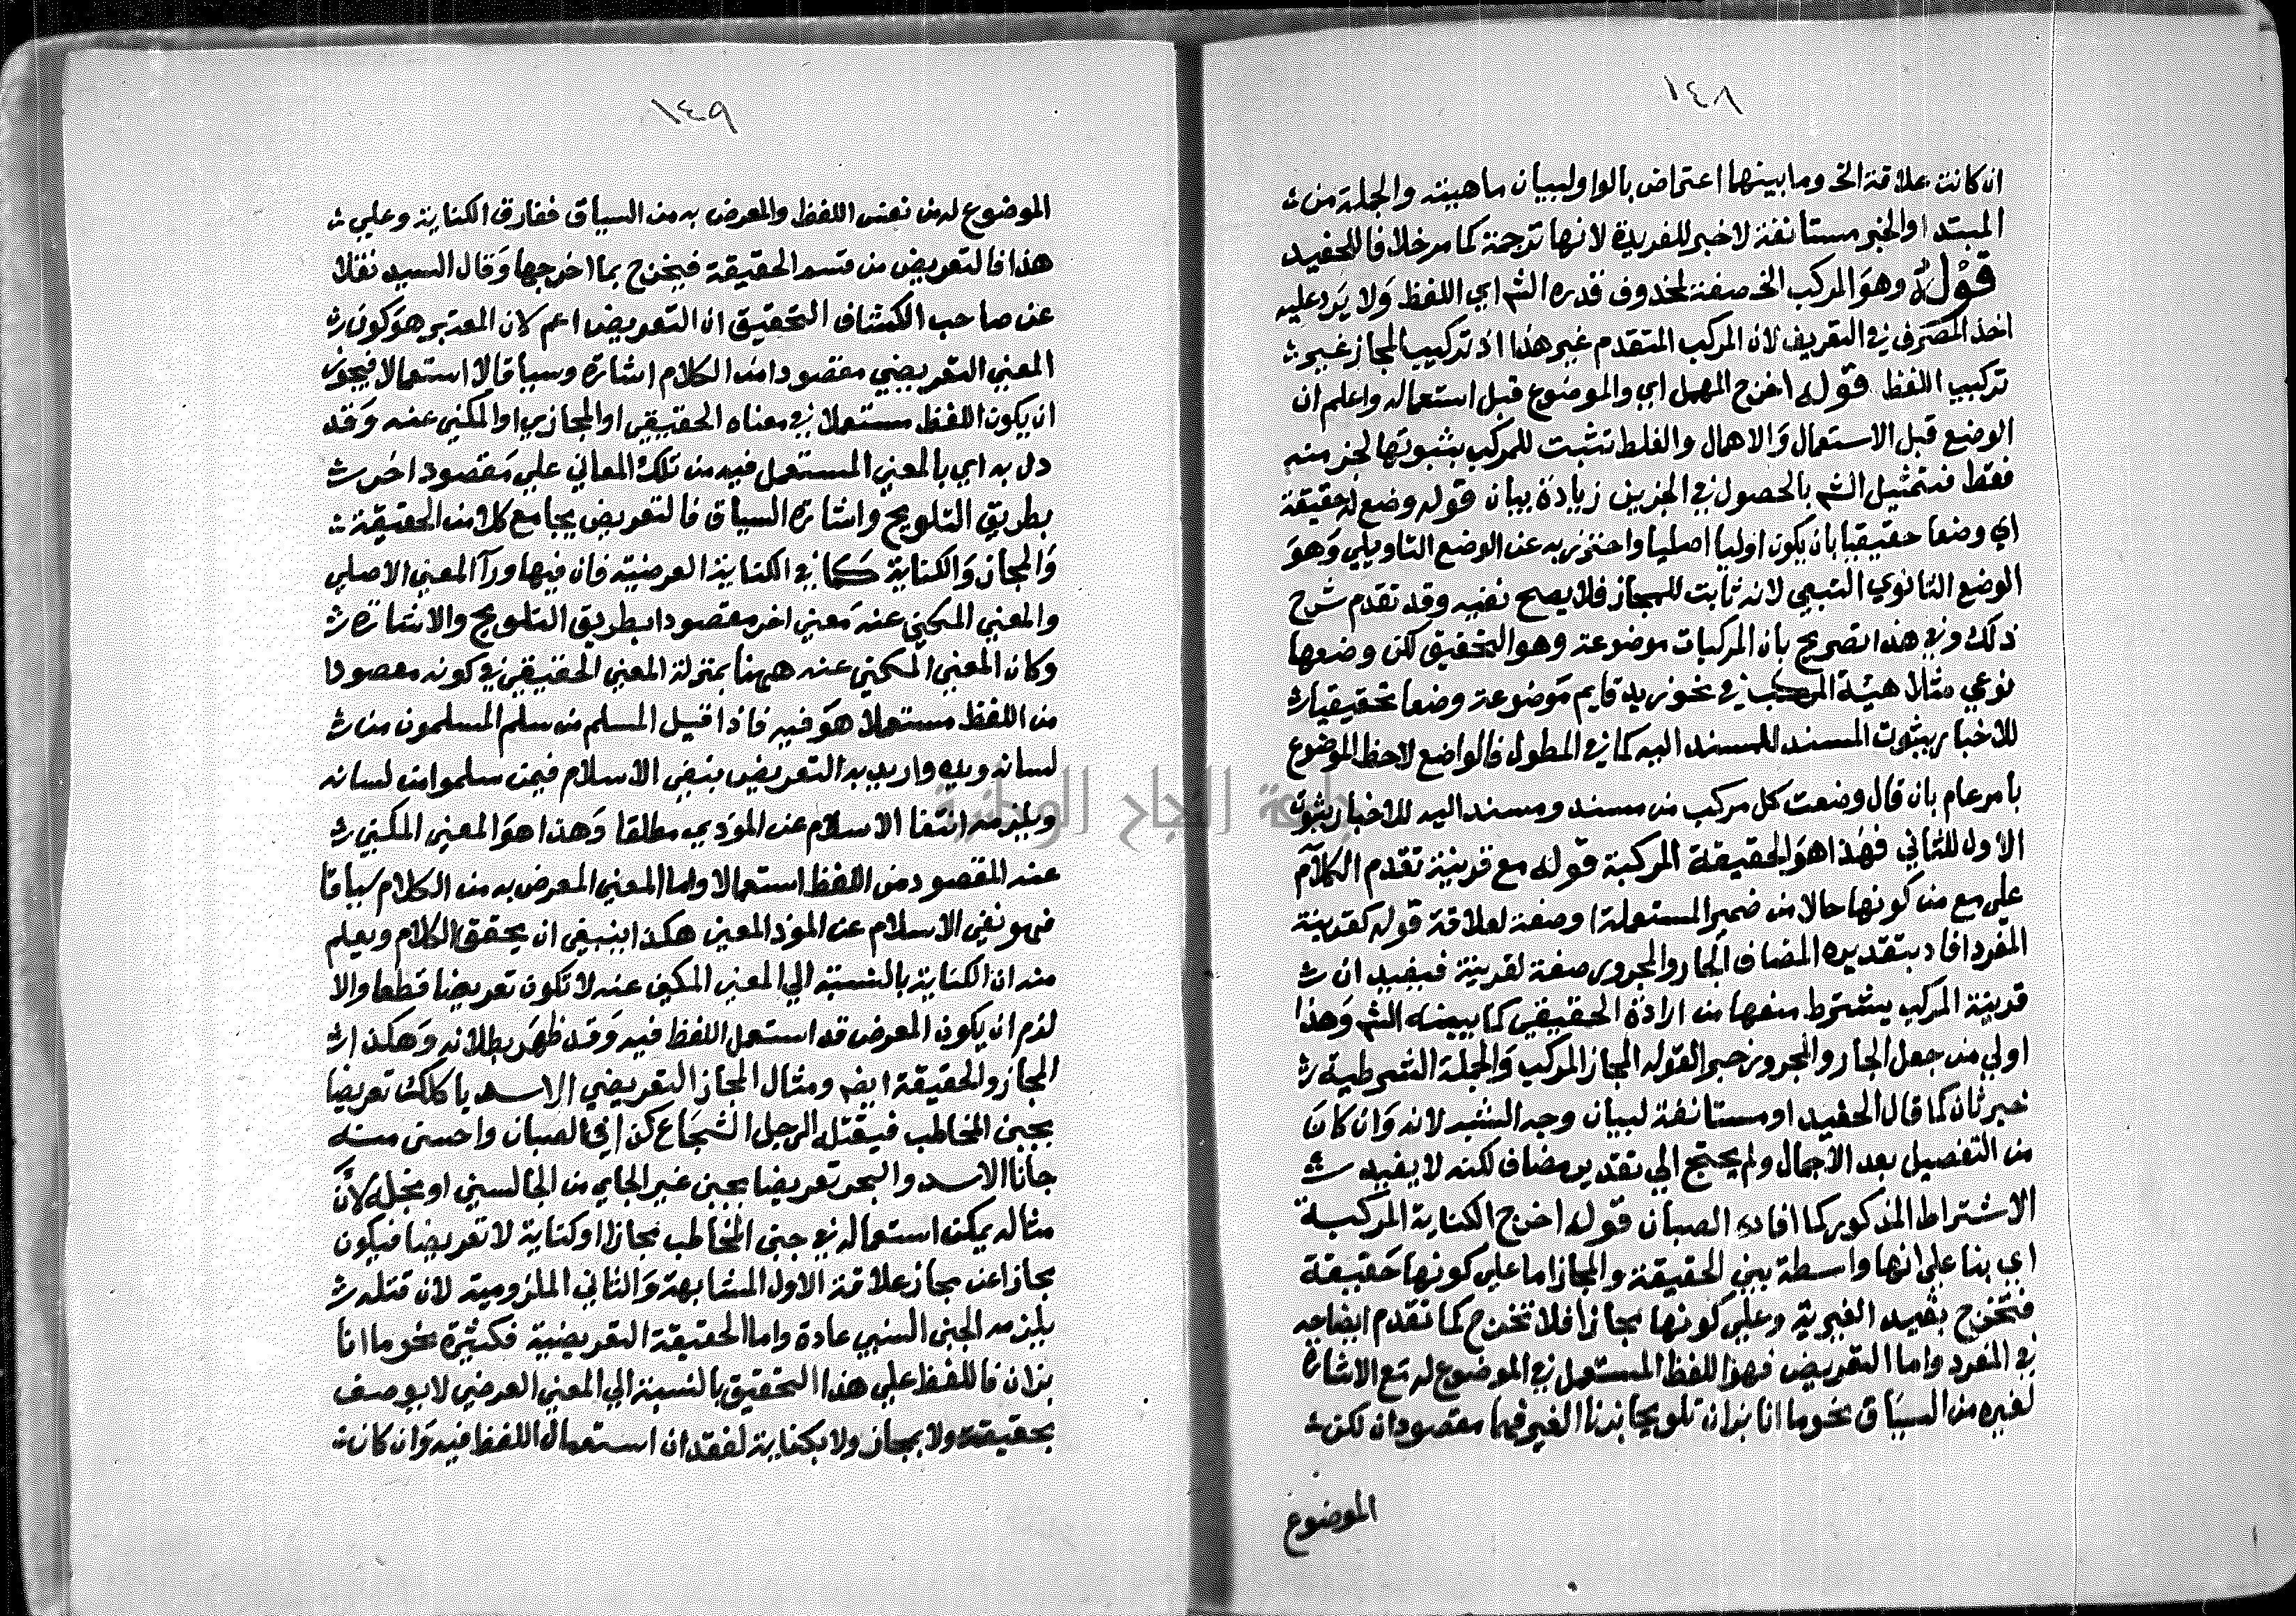 ١٤٨
ان كانت علاقة الخ وما بينهما اعتراض بالواو لبيان ماهيته والجلة من
المبتدا والخبر مستانفة لا خبر للفريدة لانها ترجمة كما مر خلافا للحفيد
قوله وهو المركب الخ صفة لمحذوف قدره الشم اي اللفظ ولا يرد عليه
اخذ المعرف في التعريف لان المركب المتقدم غير هذا اذ تركيب المجاز غير
تركيب اللفظ قوله اخرج المهمل اي والموضوع قبل استعماله واعلم ان
الوضع قبل الاستعمال والاهمال والغلط تثبت للمركب بثبوتها لجزء منه
فقط فتمثيل الشم بالحصول في الجزين زيادة بيان قوله وضع له حقيقة
اي وضعا حقيقيا بان يكون اوليا اصليا واحترز به عن الوضع التاويلي وهو
الوضع الثانوي التبعي لانه ثابت للمجاز فلا يصح نفيه وقد تقدم شرح
ذلك وفي هذا تصريح بان المركبات موضوعة وهو التحقيق لكن وضعها
نوعي مثلا هيئة المركب في نحو زيد قايم موضوعة وضعا تحقيقيا
للاخبار بثبوت المسند للمسند اليه كما في المطول فالواضع لاحظ الموضوع
بامر عام بان قال وضعت كل مركب من مسند ومسند اليه للاخبار بثبوت
الاول للثاني فهذا هو الحقيقة المركبة قوله مع قرينة تقدم الكلام
على مع من كونها حالا من ضمير المستعملة او صفة لعلاقة قوله كقرينة
المفرد افاد بتقديره المضاف الجار والمجرور صفة لقرينة فيفيد ان
قرينة المركب يشترط منعها من ارادة الحقيقي كما بينه الشم وهذا
اولي من جعل الجار والمجرور خبر القوله المجاز المركب والجلة الشرطية
خبر ثان كما قال الحفيد او مستانفة لبيان وجه الشبه لانه وان كان
من التفصيل بعد الاجمال ولم يحتج الي تقدير مضاف لكنه لا يفيد
الاشتراط المذكور كما افاده الصبان قوله اخرج الكناية المركبة
اي بنا على انها واسطة بين الحقيقة والمجاز اما على كونها حقيقة
فتخرج بقيد الغيرية وعلي كونها مجازا فلا تخرج كما تقدم ايضاحه
في المفرد واما التعريض فهو اللفظ المستعمل في الموضوع له مع الاشارة
لغيره من السياق نحو ما انا بزان تلويحا بزنا الغير فهما مقصودان لكن
الموضوع
١٤٩
الموضوع له من نفس اللفظ والمعرض به من السياق ففارق الكناية وعلي
هذا فالتعريض من قسم الحقيقة فيخرج بما اخرجها وقال السيد نقلا
عن صاحب الكشاف التحقيق ان التعريض اعم لان المعتبر هو كون
المعني التعريضي مقصودا من الكلام اشارة وسياقا لا استعمالا فيجوز
ان يكون اللفظ مستعملا في معناه الحقيقي او المجازي او المكني عنه وقد
دل به اي بالمعني المستعمل فيه من تلك المعاني علي مقصود اخر
بطريق التلويح واشارة السياق فالتعريض يجامع كلا من الحقيقة
والمجاز والكناية كما في الكناية العرضية فان فيها ورآ المعني الاصلي
والمعني المكني عنه معني اخر مقصودا بطريق التلويح والاشارة
وكان المعني المكني عنه ههنا بمنزلة المعني الحقيقي في كونه مقصودا
من اللفظ مستعملا هو فيه فاذا قيل المسلم من سلم المسلمون من
لسانه ويده واريد به التعريض بنفي الاسلام فيمن سلموا من لسانه
ويلزمه انتفا الاسلام عن المؤدي مطلقا وهذا هو المعني المكني
عنه المقصود من اللفظ استعمالا واما المعني المعرض به من الكلام سياقا
فهو نفي الاسلام عن المؤذ المعين هكذا ينبغي ان يحقق الكلام ويعلم
منه ان الكناية بالنسبة الي المعني المكني عنه لا تكون تعريضا قطعا والا
لزم ان يكون المعرض قد استعمل اللفظ فيه وقد ظهر بطلانه وهكذا
المجاز والحقيقة ايضم ومثال المجاز التعريضي الاسد ياكلك تعريضا
بجبن المخاطب فيقتله الرجل الشجاع كذا في الصبان واحسن منه
جانا الاسد والبحر تعريضا بجبن غير الجاي من الجالسين او بخله لأن
مثاله يمكن استعماله في جبن المخاطب مجازا او كناية لا تعريضا فيكون
مجازا عن مجاز علاقة الاول المشابهة والثاني الملزومية لان قتله
يلزمه الجبن السببي عادة واما الحقيقة التعريضية فكثيرة نحو ما انا
بزان فاللفظ علي هذا التحقيق بالنسبة الي المعني العرضي لا يوصف
بحقيقة ولا بمجاز ولا بكناية لفقدان استعمال اللفظ فيه وان كان
جامعة النجاح الوطنية